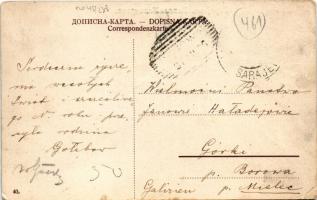 ДОПИСНА-КАРТА. — DOPISNA KARTA.
Correspondenzkarte
(461)
SARAJEV
Serdeczne życze-
nia wesołych
Świąt i szczęśliwe-
go N. roku prze-
syła rodzina
Gołębów
Wielmożni Państwo
Janowie
Górki
p. Borowa
Galizien p. Mielec